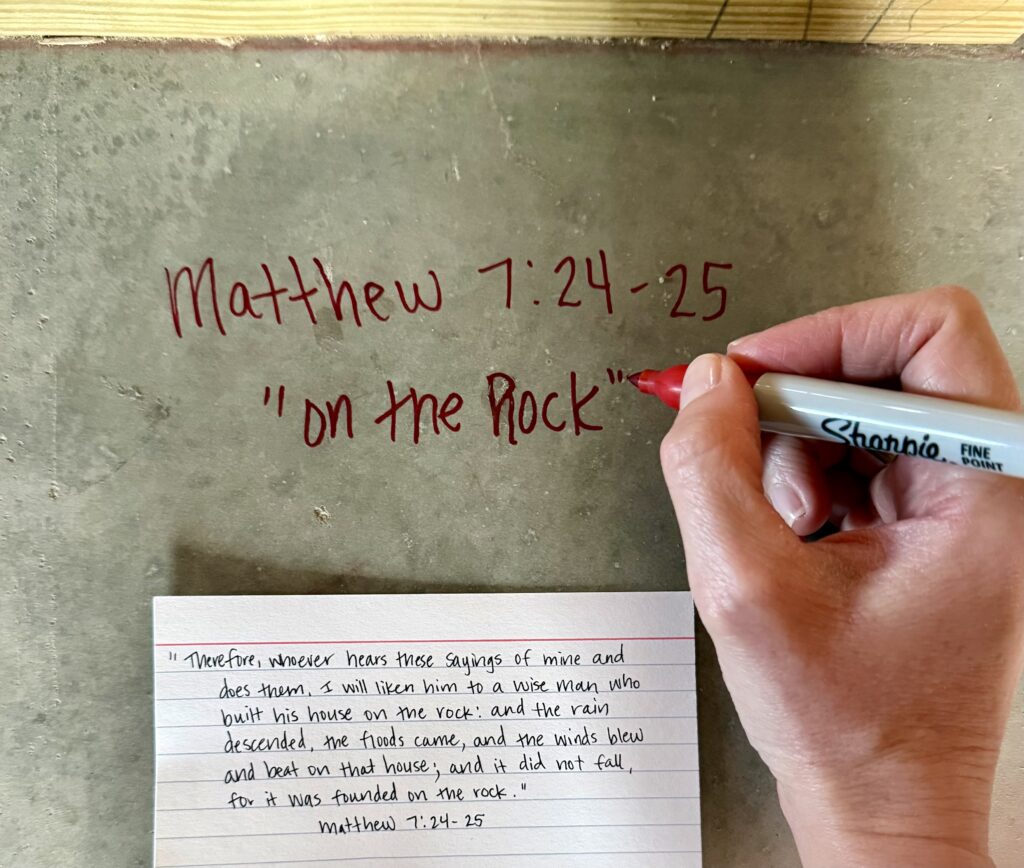 Matthew 7:24-25
"on the Rock"
Sharpie. FINE
POINT
"Therefore, whoever hears these sayings of mine and
does them, I will liken him to a wise man who
built his house on the rock: and the rain
descended, the floods came, and the winds blew
and beat on that house; and it did not fall,
for it was founded on the rock."
Matthew 7:24-25